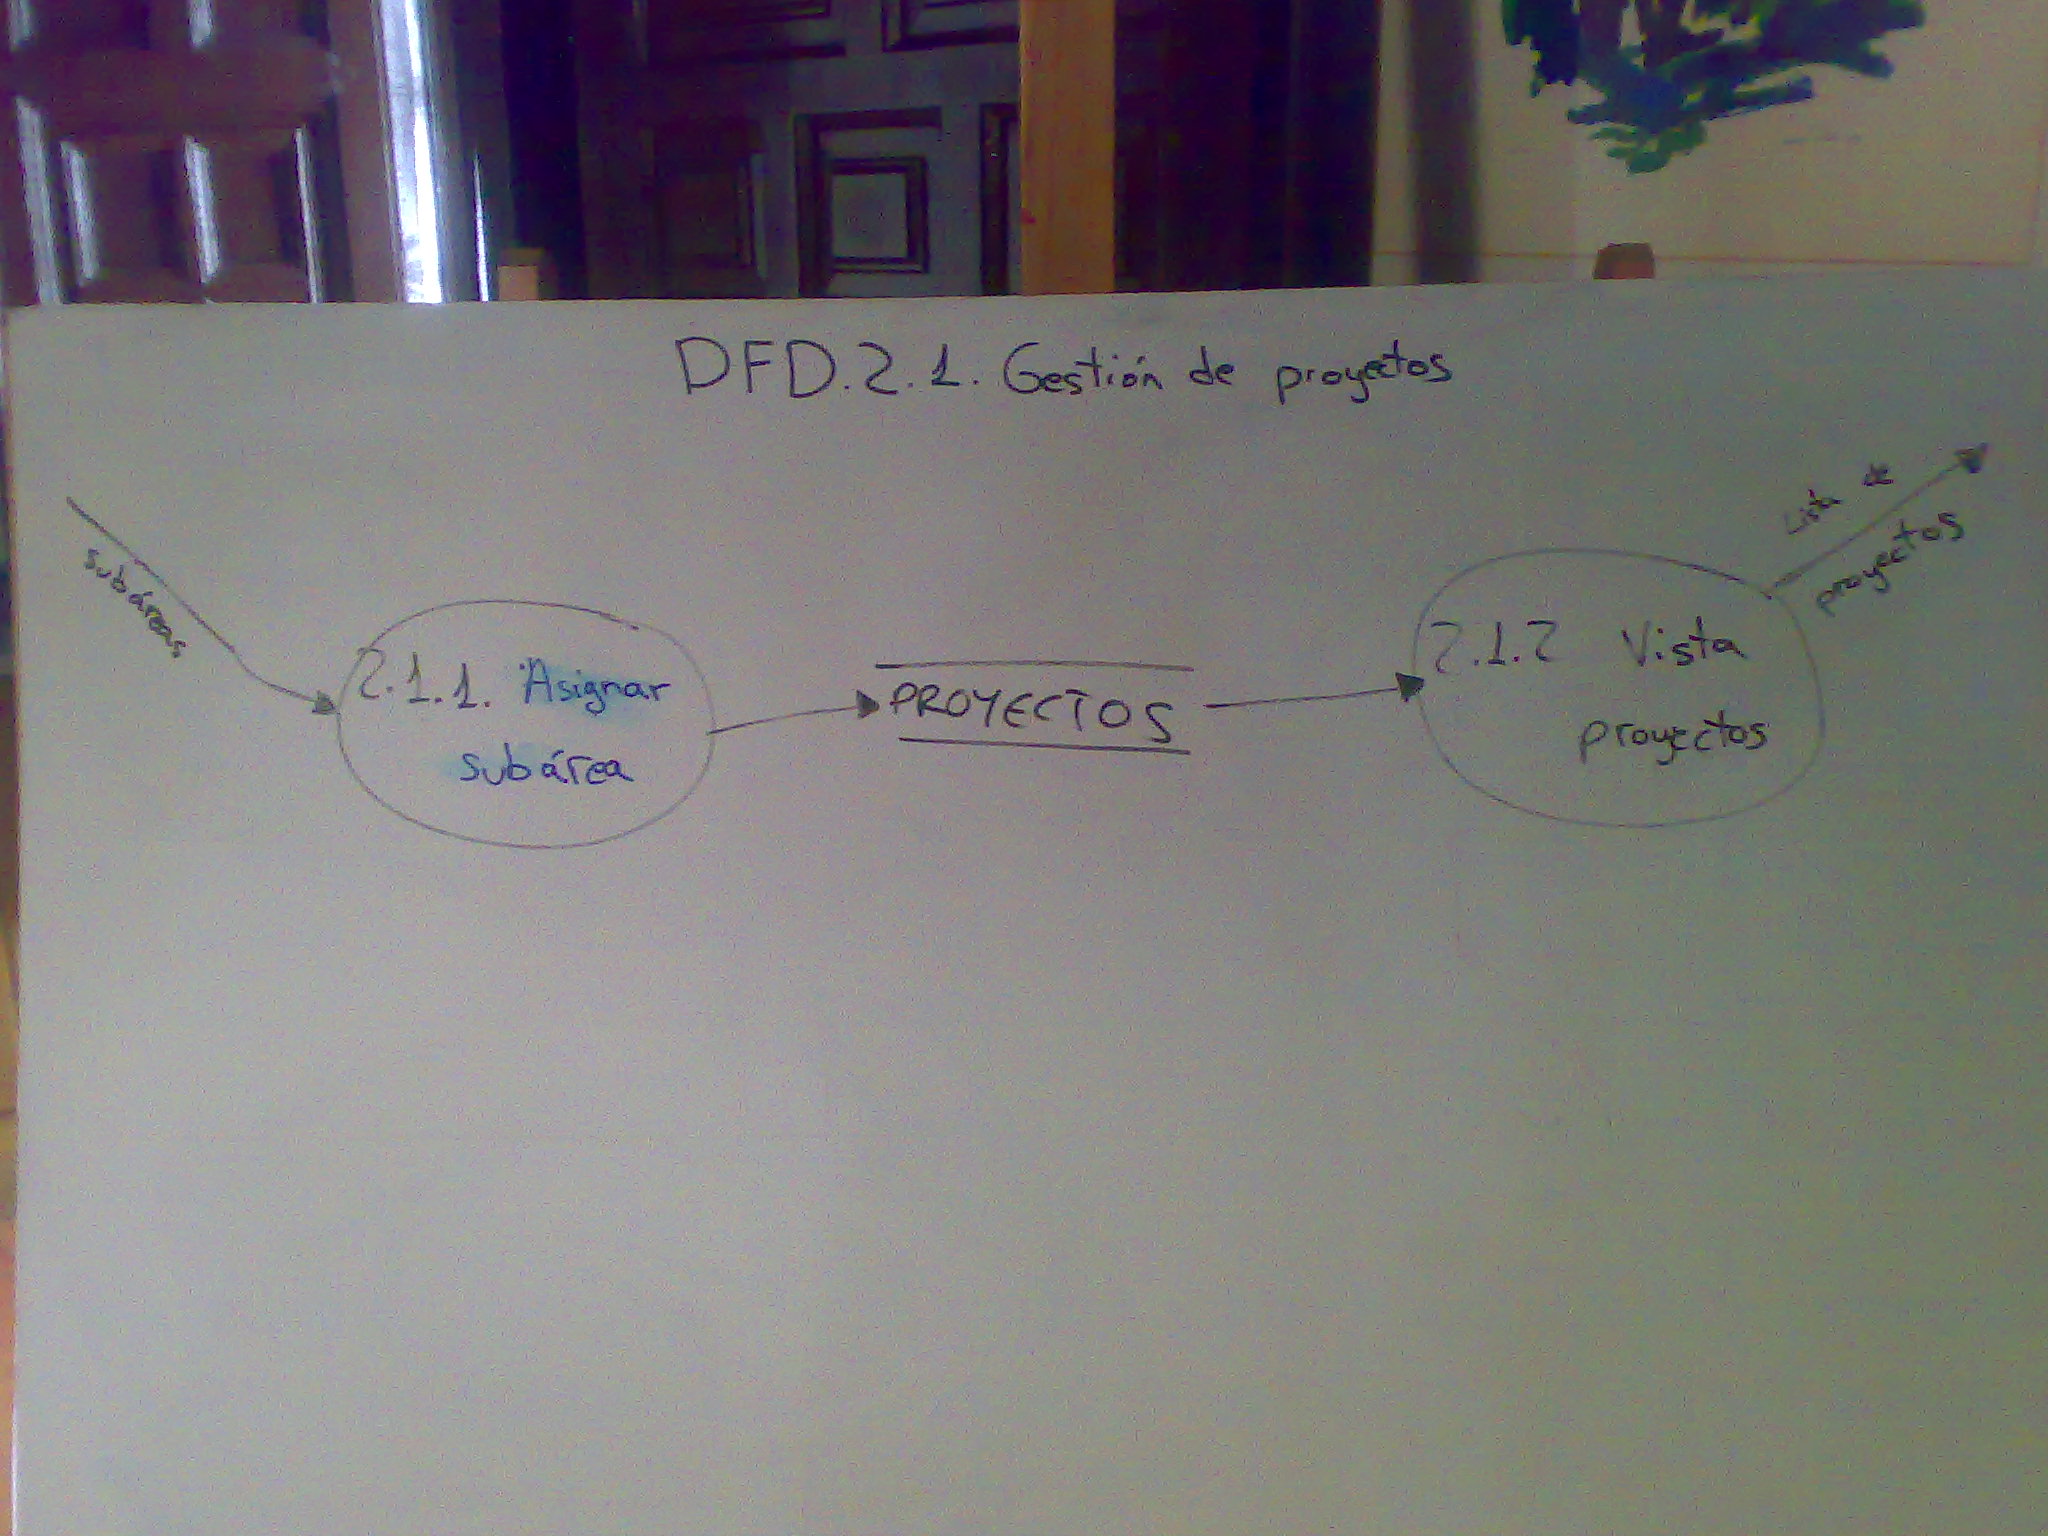 DFD.2.1. Gestión de proyectos
subáreas
2.1.1. Asignar
subárea
PROYECTOS
2.1.2 Vista
proyectos
Lista de
proyectos